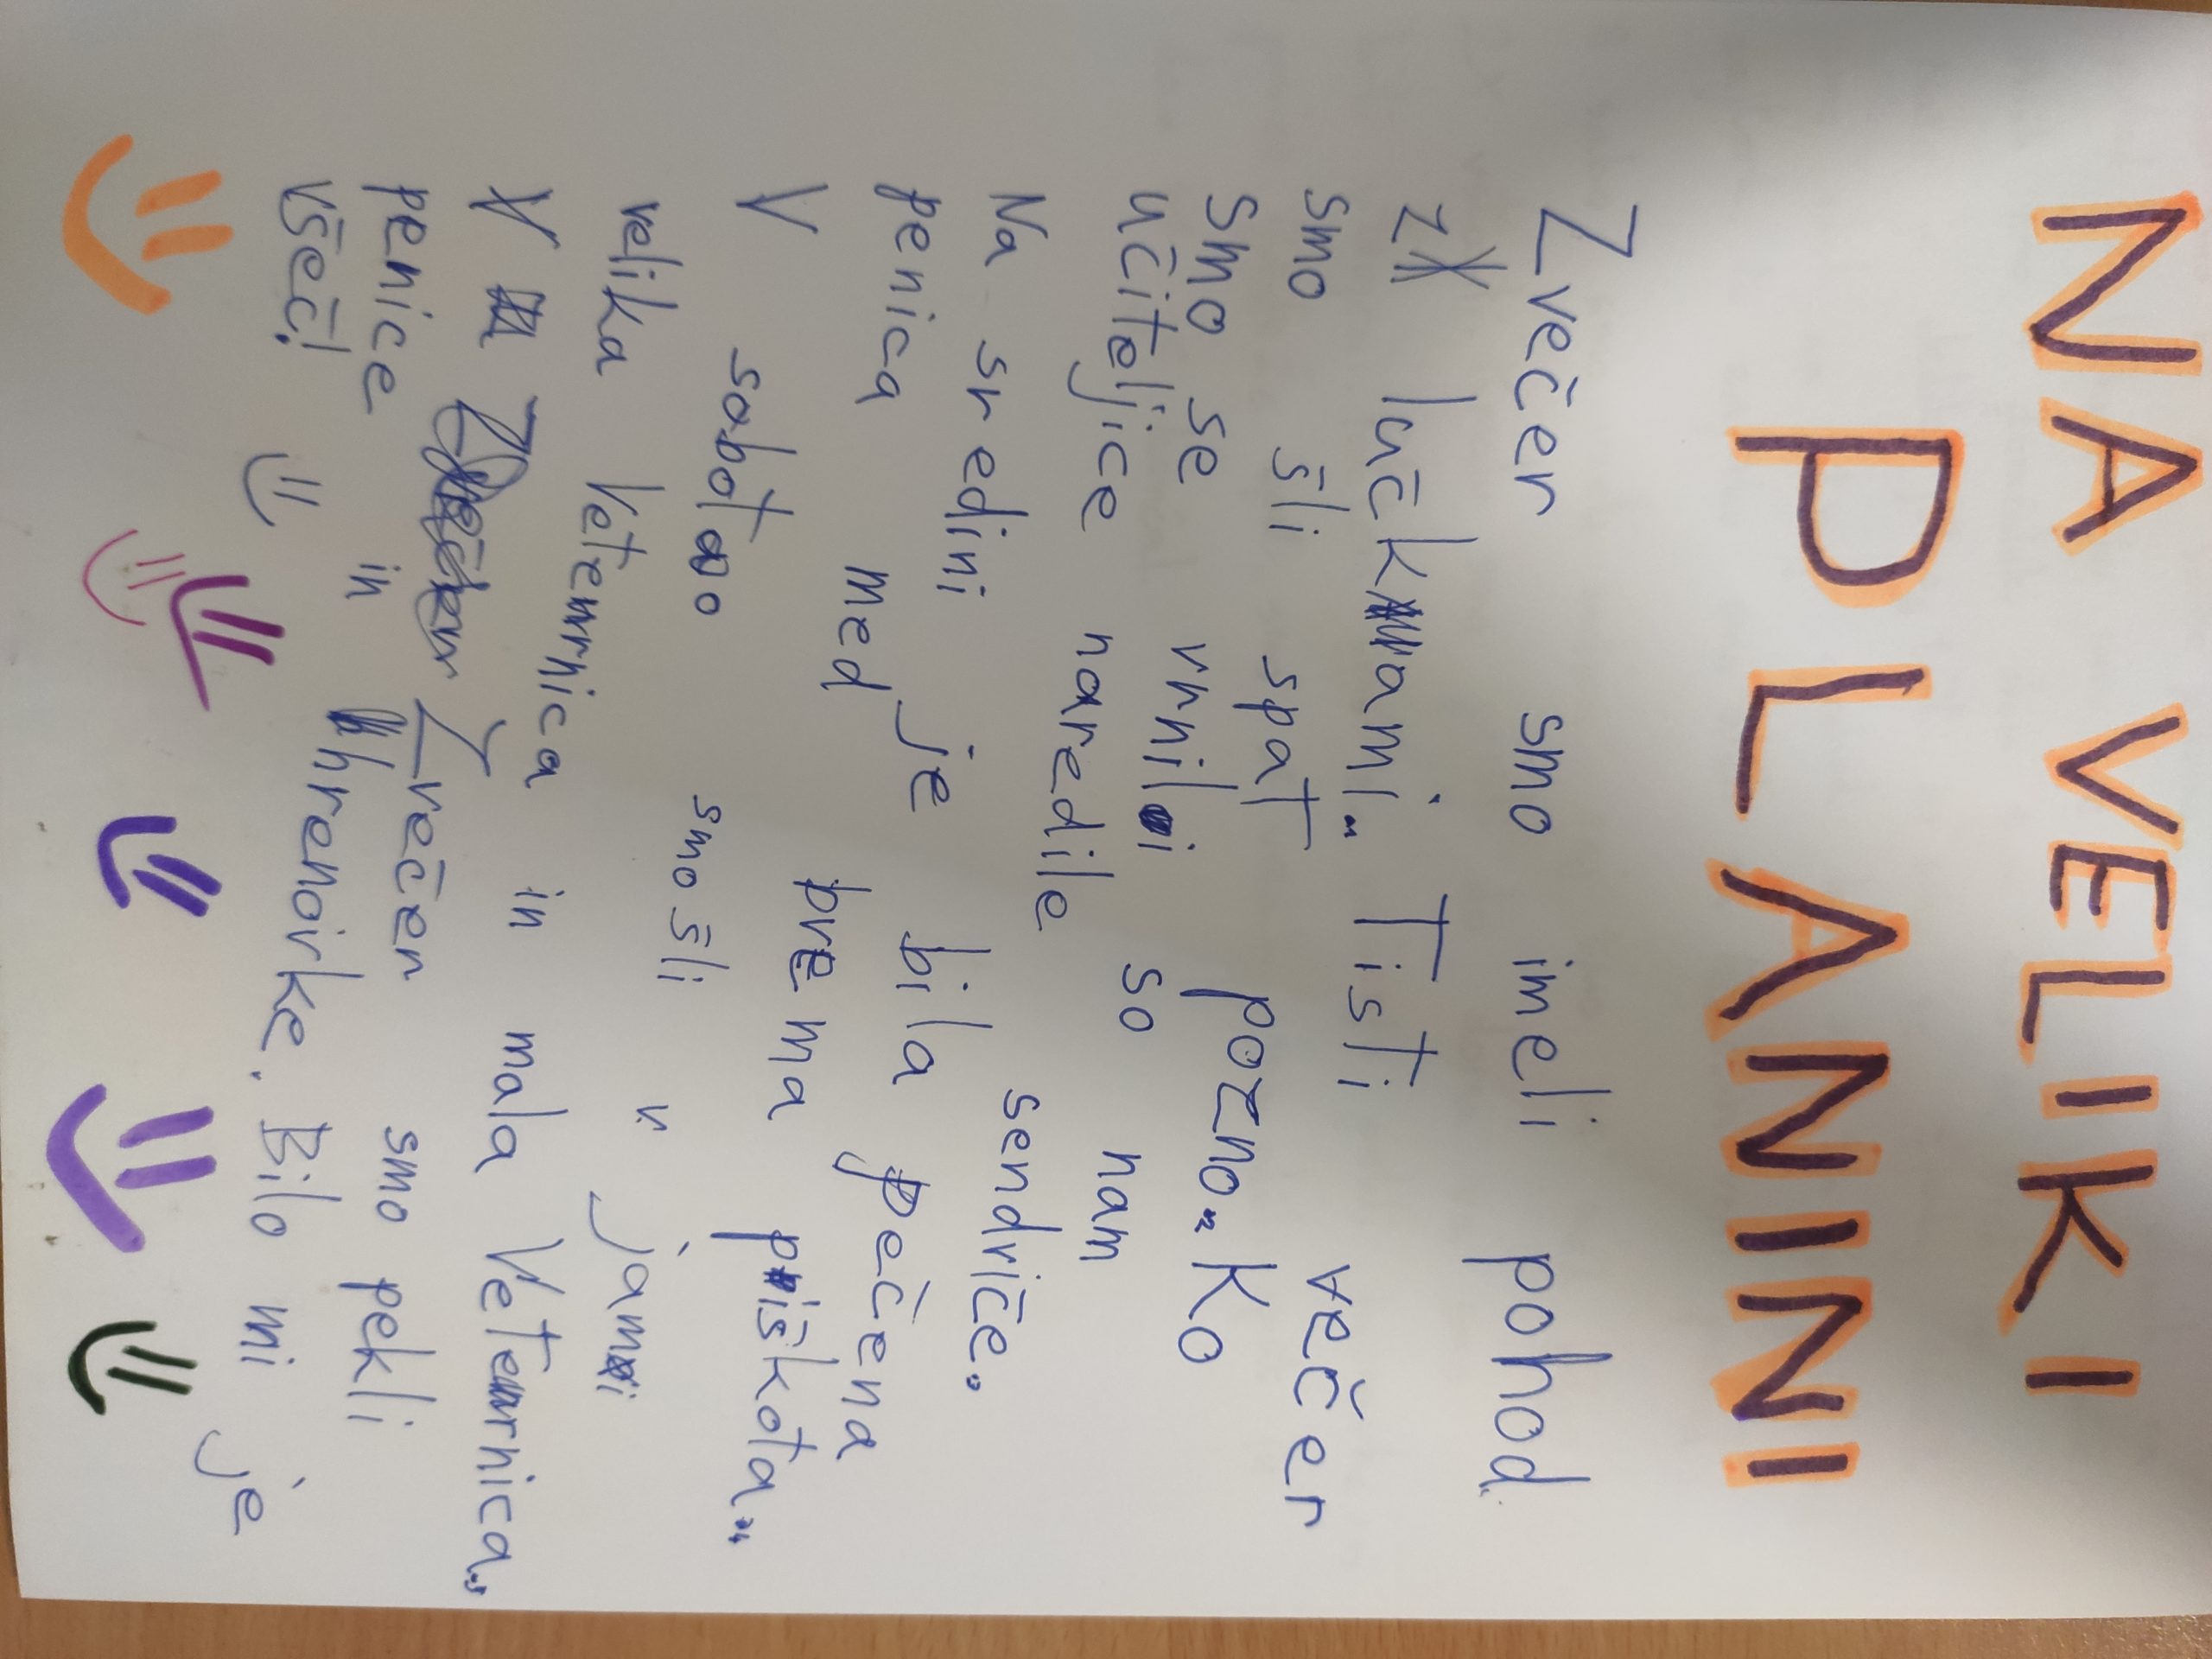 NA VELIKI
PLANINI
Zvečer smo imeli pohod
z lučkami. Tisti večer
smo šli spat pozno. Ko
smo se vrnili so nam
učiteljice naredile sendviče.
Na sredini je bila pečena
penica med bvema piškota.
V soboto smo šli v jami
velika Veternica in mala Veternica.
V Zvečer smo pekli
penice in hrenovke. Bilo mi je
všeč!